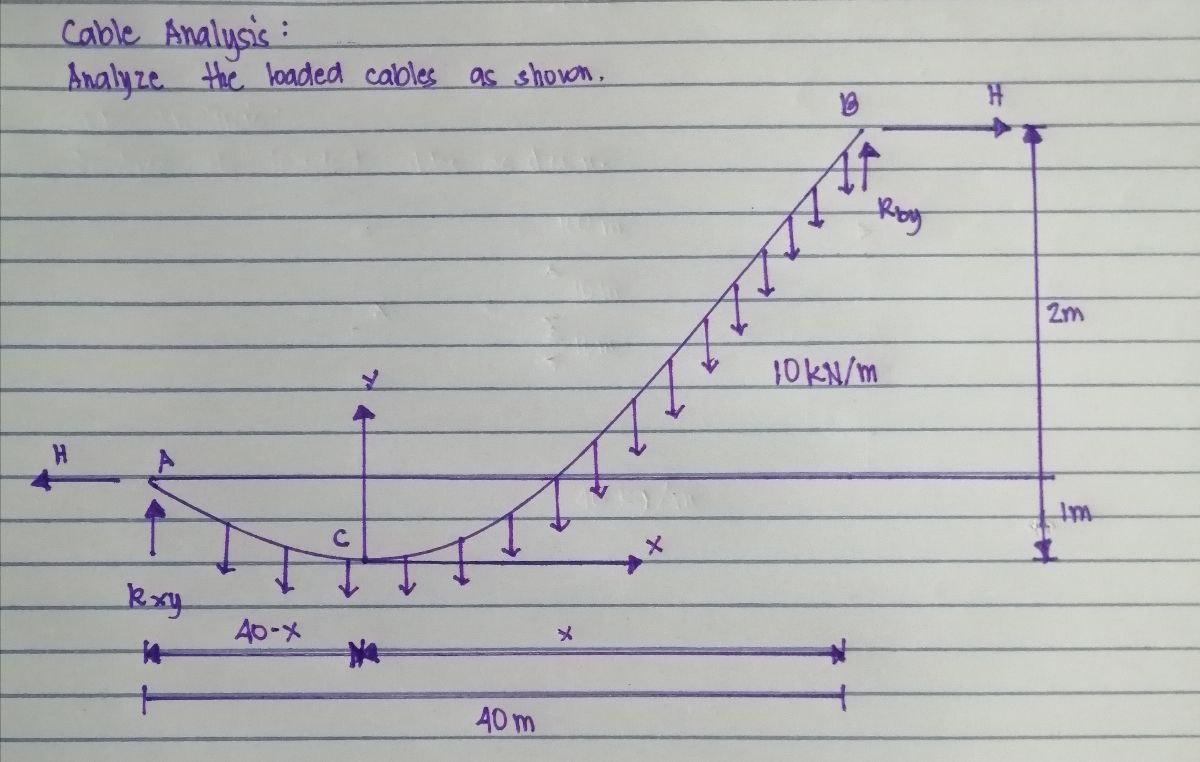 Cable Analysis:
Analyze the loaded cables as shown.
B
H
Rby
2m
10kN/m
y
H
A
1m
C
x
Rxy
40-x
x
40m